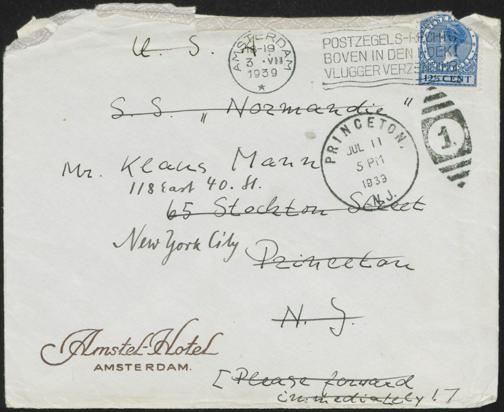 U. S. A.
AMSTERDAM
18-19
3 VII
1939
POSTZEGELS-RECHTS
BOVEN IN DEN HOEK!
VLUGGER
12½ CENT
S. S. "Normandie"
PRINCETON,
JUL 11
5 PM
1939
N.J.
1
Mr. Klaus Mann
118 East 40. St.
65 Stockton Street
New York City
Princeton
N. J.
Amstel-Hotel
AMSTERDAM.
[Please forward
immediately!]